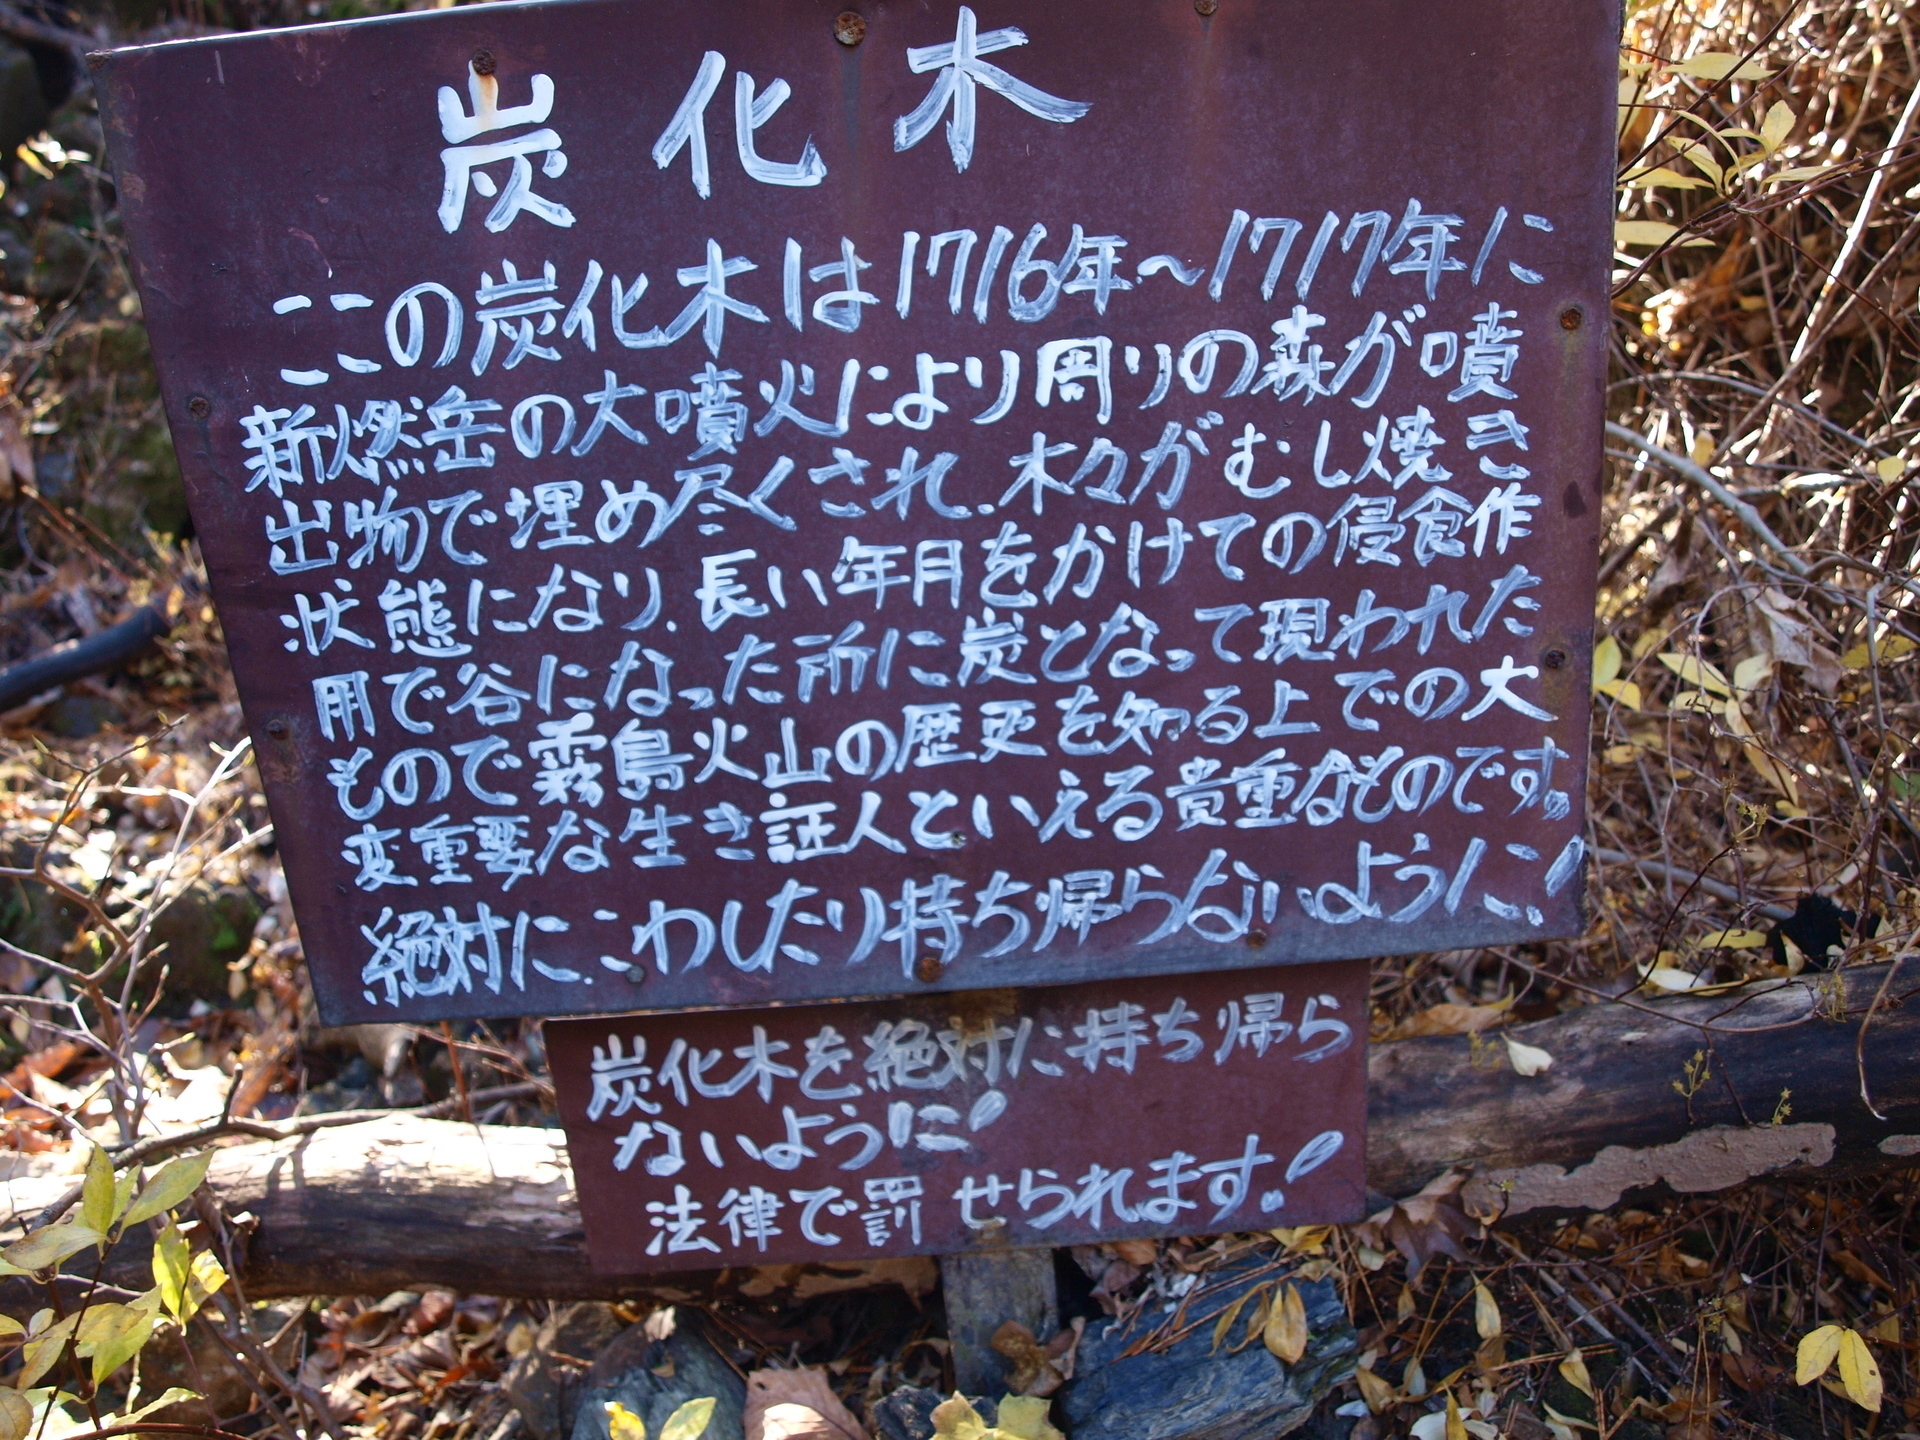 炭化木
この炭化木は1716年〜1717年に
新燃岳の大噴火により周りの森が噴
出物で埋め尽くされ、木々がむし焼き
状態になり、長い年月をかけての侵食作
用で谷になった所に炭となって現われた
もので霧島火山の歴史を知る上での大
変重要な生き証人といえる貴重なものです。
絶対に、こわしたり持ち帰らないように!
炭化木を絶対に持ち帰ら
ないように!
法律で罰せられます!